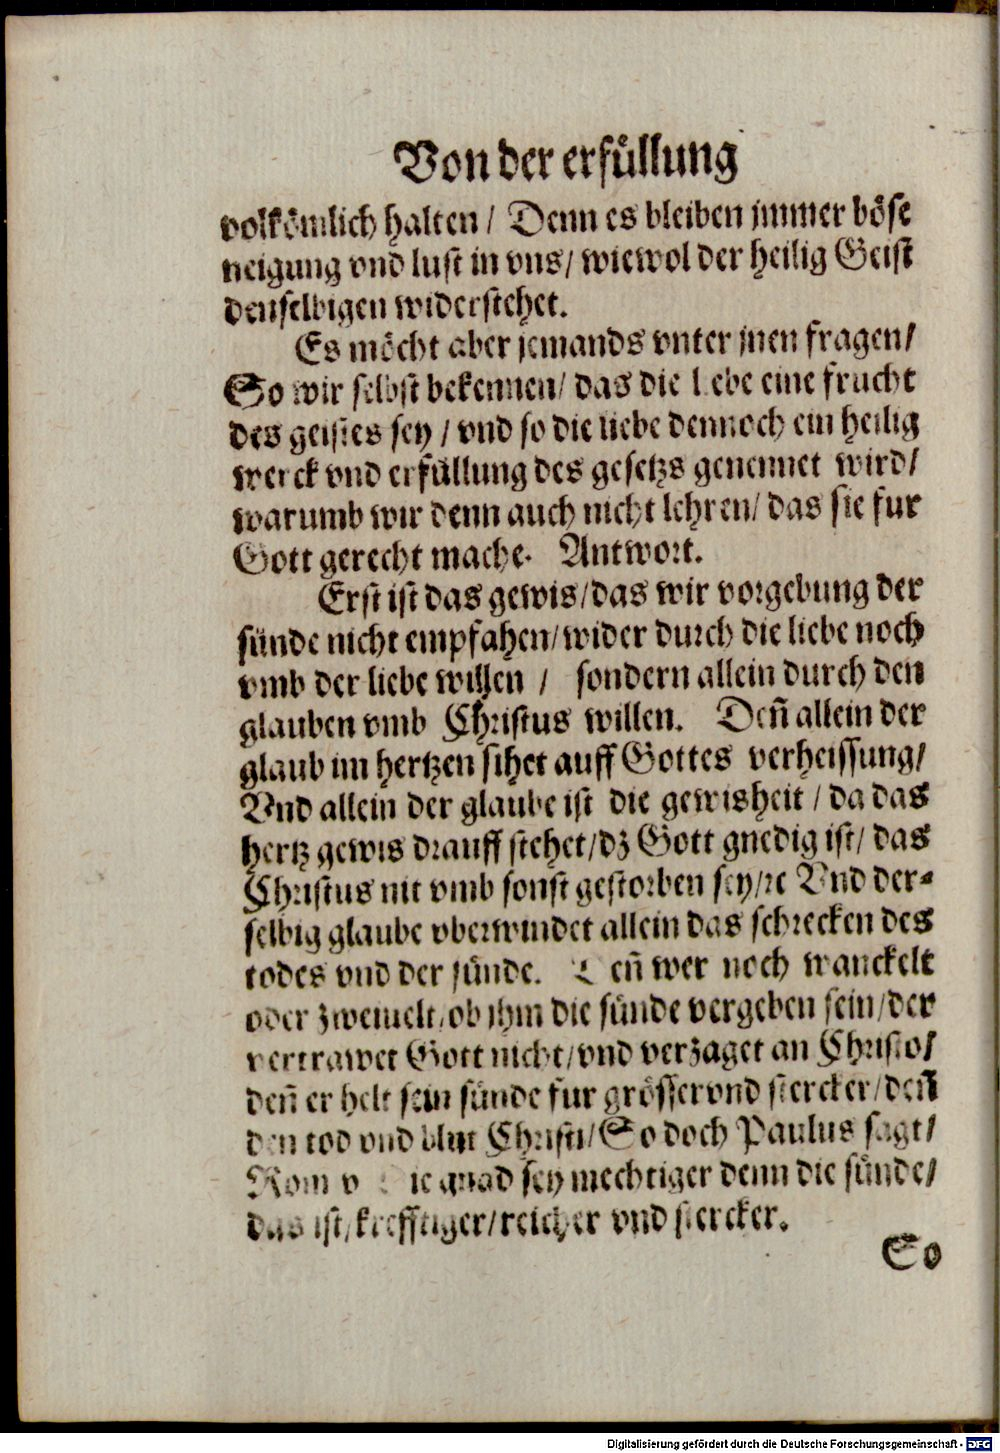 Von der erfüllung
volkömlich halten / Denn es bleiben jmmer böse
neigung vnd lust in vns / wiewol der heilig Geist
denselbigen widerstehet.
Es möcht aber jemands vnter jnen fragen /
So wir selbst bekennen / das die liebe eine frucht
des geistes sey / vnd so die liebe dennoch ein heilig
werck vnd erfüllung des gesetzs genennet wird /
warumb wir denn auch nicht lehren / das sie fur
Gott gerecht mache. Antwort.
Erst ist das gewis / das wir vorgebung der
sünde nicht empfahen / wider durch die liebe noch
vmb der liebe willen / sondern allein durch den
glauben vmb Christus willen. Deñ allein der
glaub im hertzen sihet auff Gottes verheissung /
Vnd allein der glaube ist die gewisheit / da das
hertz gewis drauff stehet / dz Gott gnedig ist / das
Christus nit vmb sonst gestorben sey / ꝛc Vnd der-
selbig glaube vberwindet allein das schrecken des
todes vnd der sünde. Deñ wer noch wanckelt
oder zweiuelt / ob ihm die sünde vergeben sein / der
vertrawet Gott nicht / vnd verzaget an Christo /
deñ er helt sein sünde fur grösser vnd stercker / deñ
den tod vnd blut Christi / So doch Paulus sagt /
Rom v Die gnad sey mechtiger denn die sünde /
das ist / krefftiger / reicher vnd stercker.
So
Digitalisierung gefördert durch die Deutsche Forschungsgemeinschaft - DFG